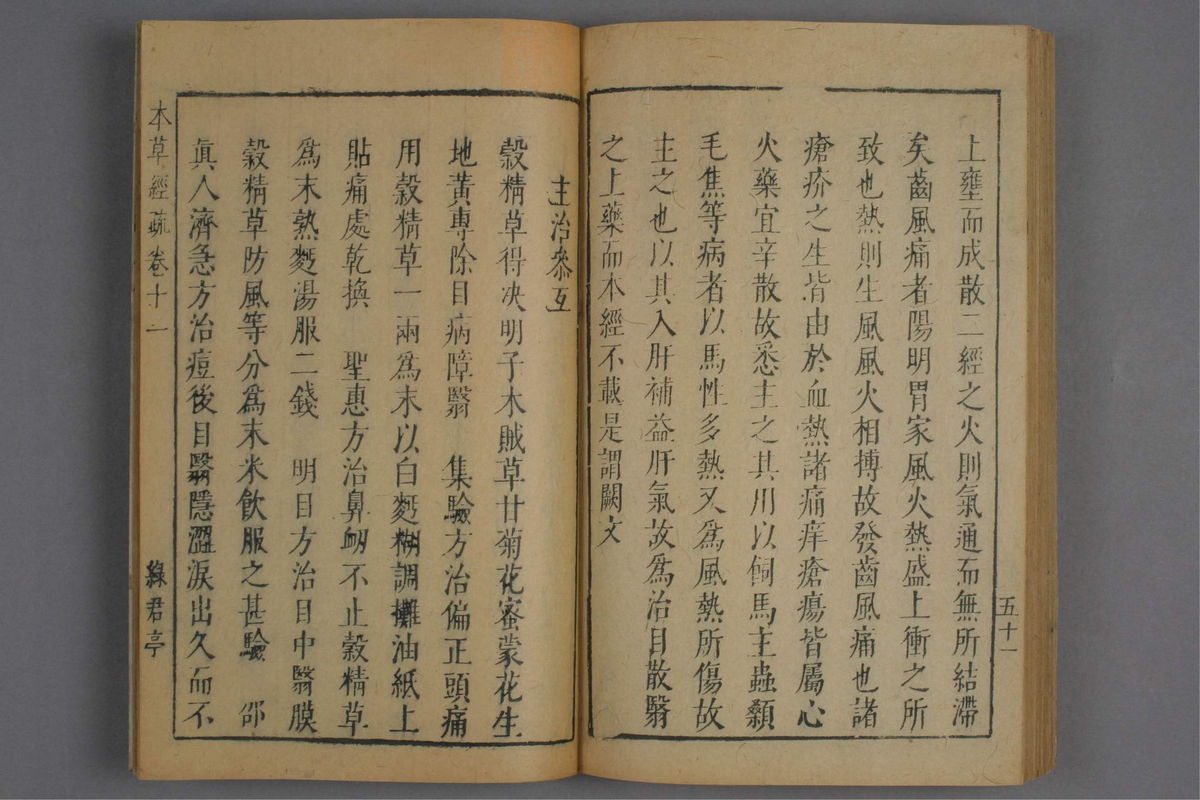 上壅而成散二經之火則氣通而無所結滯
矣齒風痛者陽明胃家風火熱盛上衝之所
致也熱則生風風火相搏故發齒風痛也諸
瘡疥之生皆由於血熱諸痛痒瘡瘍皆屬心
火藥宜辛散故悉主之其用以飼馬主蟲顙
毛焦等病者以馬性多熱又爲風熱所傷故
主之也以其入肝補益肝氣故爲治目散翳
之上藥而本經不載是謂闕文
五十一
主治叅互
榖精草得决明子木賊草甘菊花蜜蒙花生
地黃專除目病障翳 集驗方治偏正頭痛
用榖精草一兩爲末以白麪糊調攤油紙上
貼痛處乾換 聖惠方治鼻衂不止榖精草
爲末熟麪湯服二錢 明目方治目中翳膜
榖精草防風等分爲末米飲服之甚驗 邵
眞人濟急方治痘後目翳隱澀淚出久而不
本草經疏卷十一
綠君亭